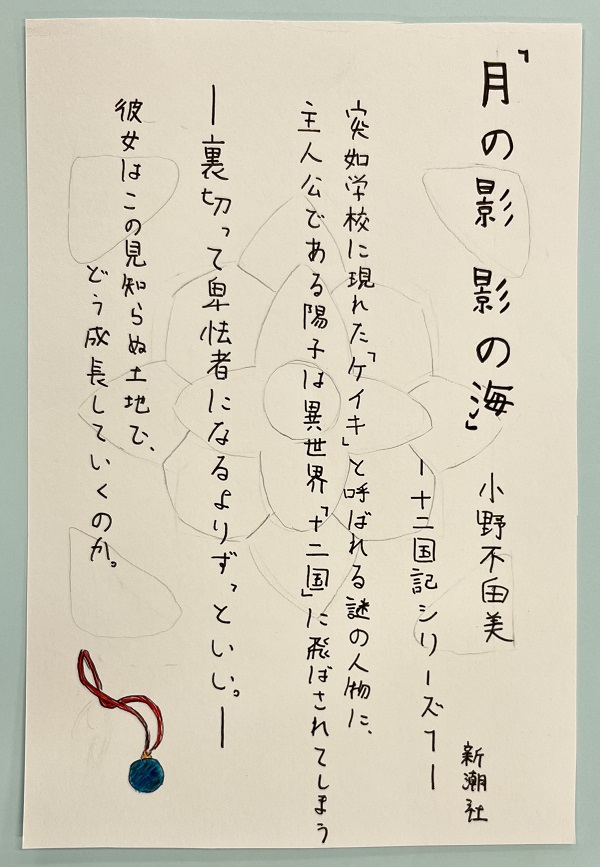 『月の影 影の海』 小野不由美
新潮社
ー十二国記シリーズ1ー
突如学校に現れた「ケイキ」と呼ばれる謎の人物に、
主人公である陽子は異世界「十二国」に飛ばされてしまう
ー裏切って卑怯者になるよりずっといい。ー
彼女はこの見知らぬ土地で、
どう成長していくのか。